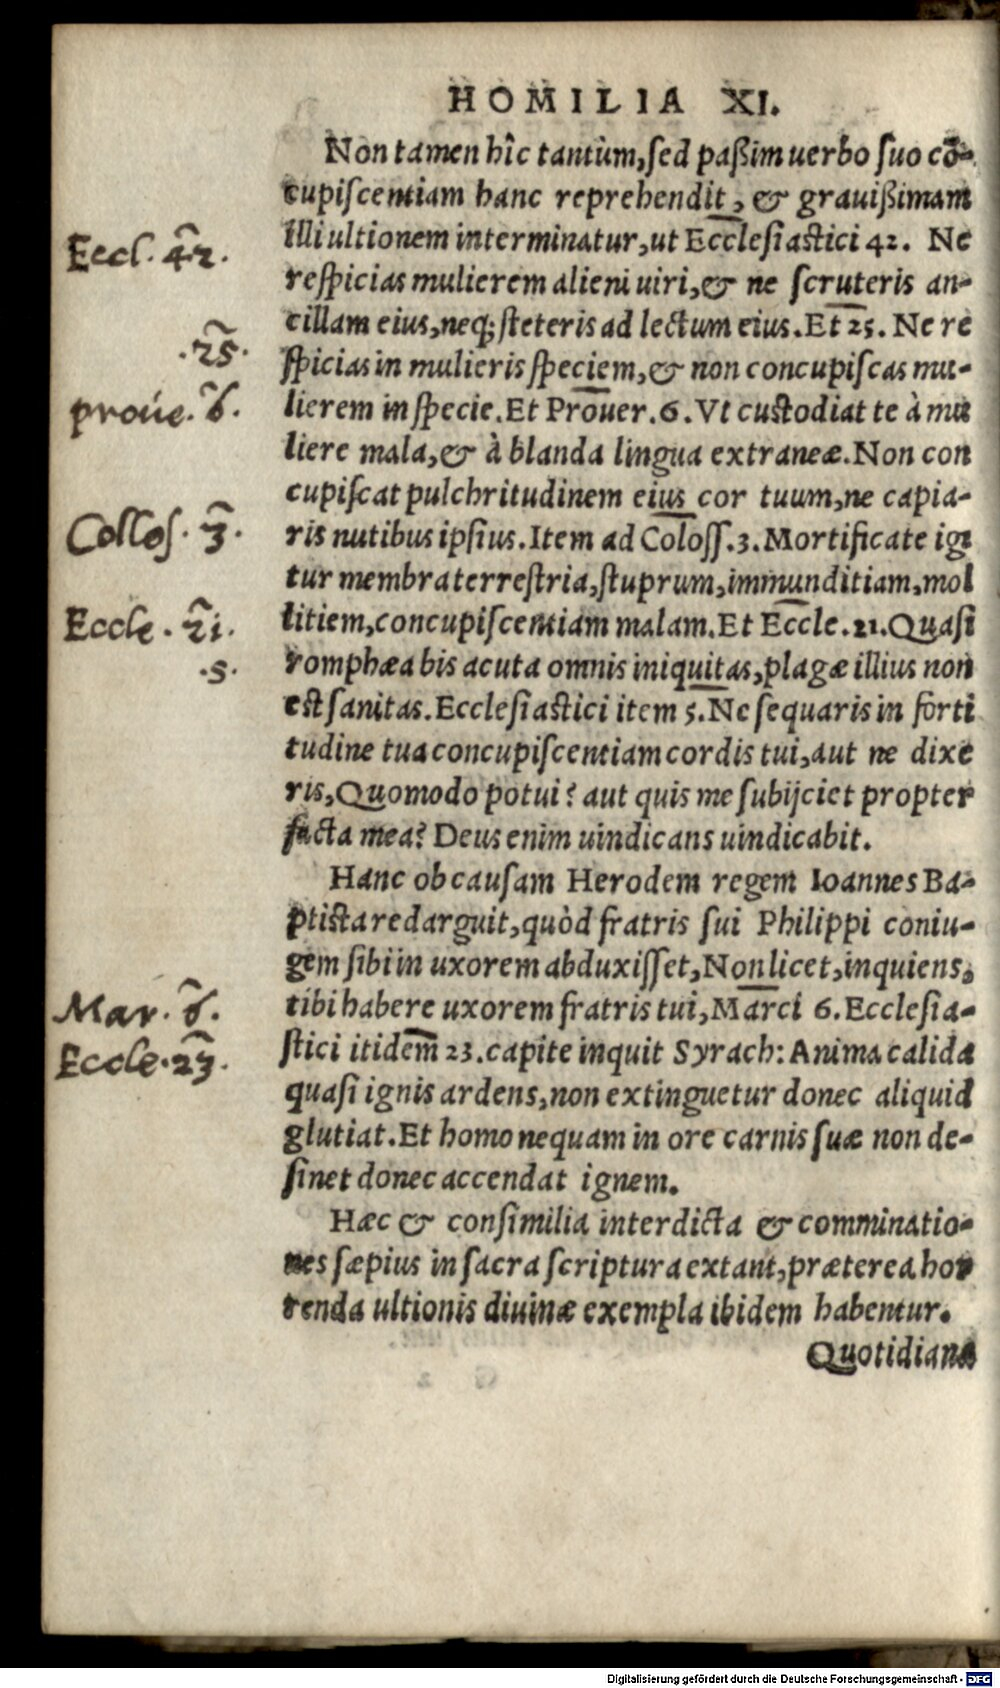 HOMILIA XI.
Non tamen hîc tantùm, sed paßim uerbo suo cõ-
cupiscentiam hanc reprehendit, & grauißimam
illi ultionem interminatur, ut Ecclesiastici 42. Ne
Eccl. 42.
respicias mulierem alieni uiri, & ne scruteris an-
cillam eius, neq; steteris ad lectum eius. Et 25. Ne re
.25.
spicias in mulieris speciem, & non concupiscas mu-
lierem in specie. Et Prouer. 6. Vt custodiat te à mu
proue. 6.
liere mala, & à blanda lingua extraneæ. Non con
cupiscat pulchritudinem eius cor tuum, ne capia-
ris nutibus ipsius. Item ad Coloss. 3. Mortificate igi
Collos. 3.
tur membra terrestria, stuprum, immunditiam, mol
litiem, concupiscentiam malam. Et Eccle. 21. Quasi
Eccle. 21.
romphæa bis acuta omnis iniquitas, plagæ illius non
.5.
est sanitas. Ecclesiastici item 5. Ne sequaris in forti
tudine tua concupiscentiam cordis tui, aut ne dixe
ris, Quomodo potui? aut quis me subijciet propter
facta mea? Deus enim uindicans uindicabit.
Hanc ob causam Herodem regem Ioannes Ba-
ptista redarguit, quòd fratris sui Philippi coniu-
gem sibi in uxorem abduxisset, Non licet, inquiens,
tibi habere uxorem fratris tui, Marci 6. Ecclesia-
Mar. 6.
stici itidem 23. capite inquit Syrach: Anima calida
Eccle. 23.
quasi ignis ardens, non extinguetur donec aliquid
glutiat. Et homo nequam in ore carnis suæ non de-
sinet donec accendat ignem.
Hæc & consimilia interdicta & comminatio-
nes sæpius in sacra scriptura extant, præterea hor
renda ultionis diuinæ exempla ibidem habentur.
Quotidiana
Digitalisierung gefördert durch die Deutsche Forschungsgemeinschaft - DFG